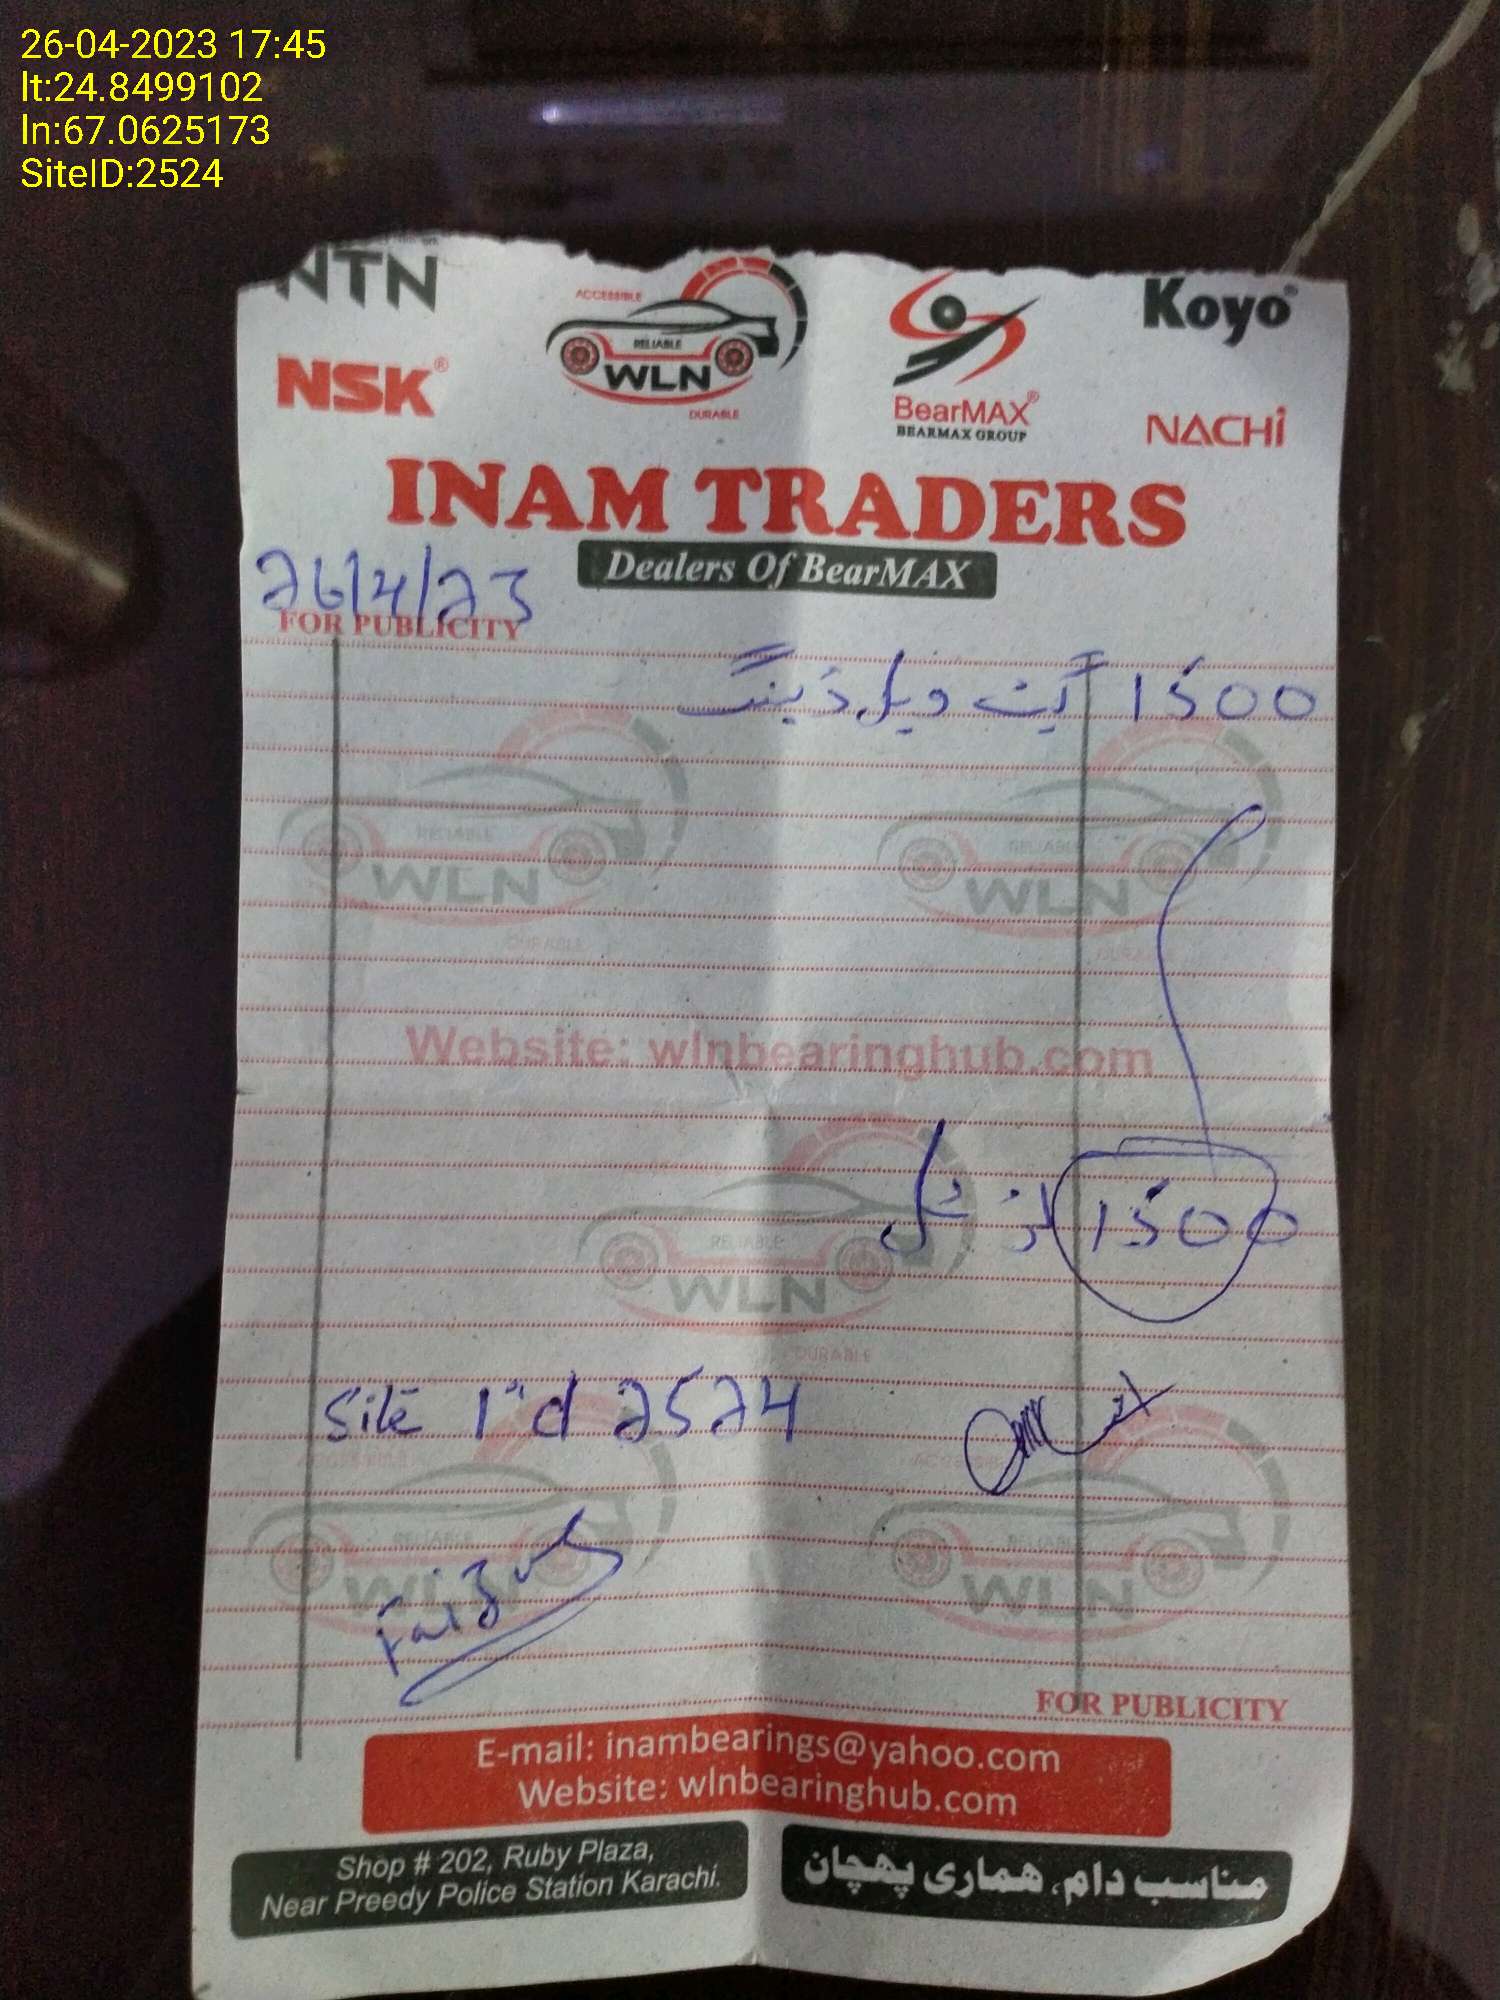 26-04-2023 17:45
lt:24.8499102
ln:67.0625173
SiteID:2524
NTN
NSK®
ACCESSIBLE
RELIABLE
WLN
DURABLE
BearMAX®
BEARMAX GROUP
Koyo®
NACHi
INAM TRADERS
Dealers Of BearMAX
26/4/23
FOR PUBLICITY
1500 گیٹ ویلڈینگ
RELIABLE
WLN
DURABLE
RELIABLE
WLN
Website: wlnbearinghub.com
1500 ٹوٹل
RELIABLE
WLN
DURABLE
Site I"d 2524
RELIABLE
WLN
RELIABLE
WLN
FOR PUBLICITY
E-mail: inambearings@yahoo.com
Website: wlnbearinghub.com
Shop # 202, Ruby Plaza,
Near Preedy Police Station Karachi.
مناسب دام، ہماری پہچان